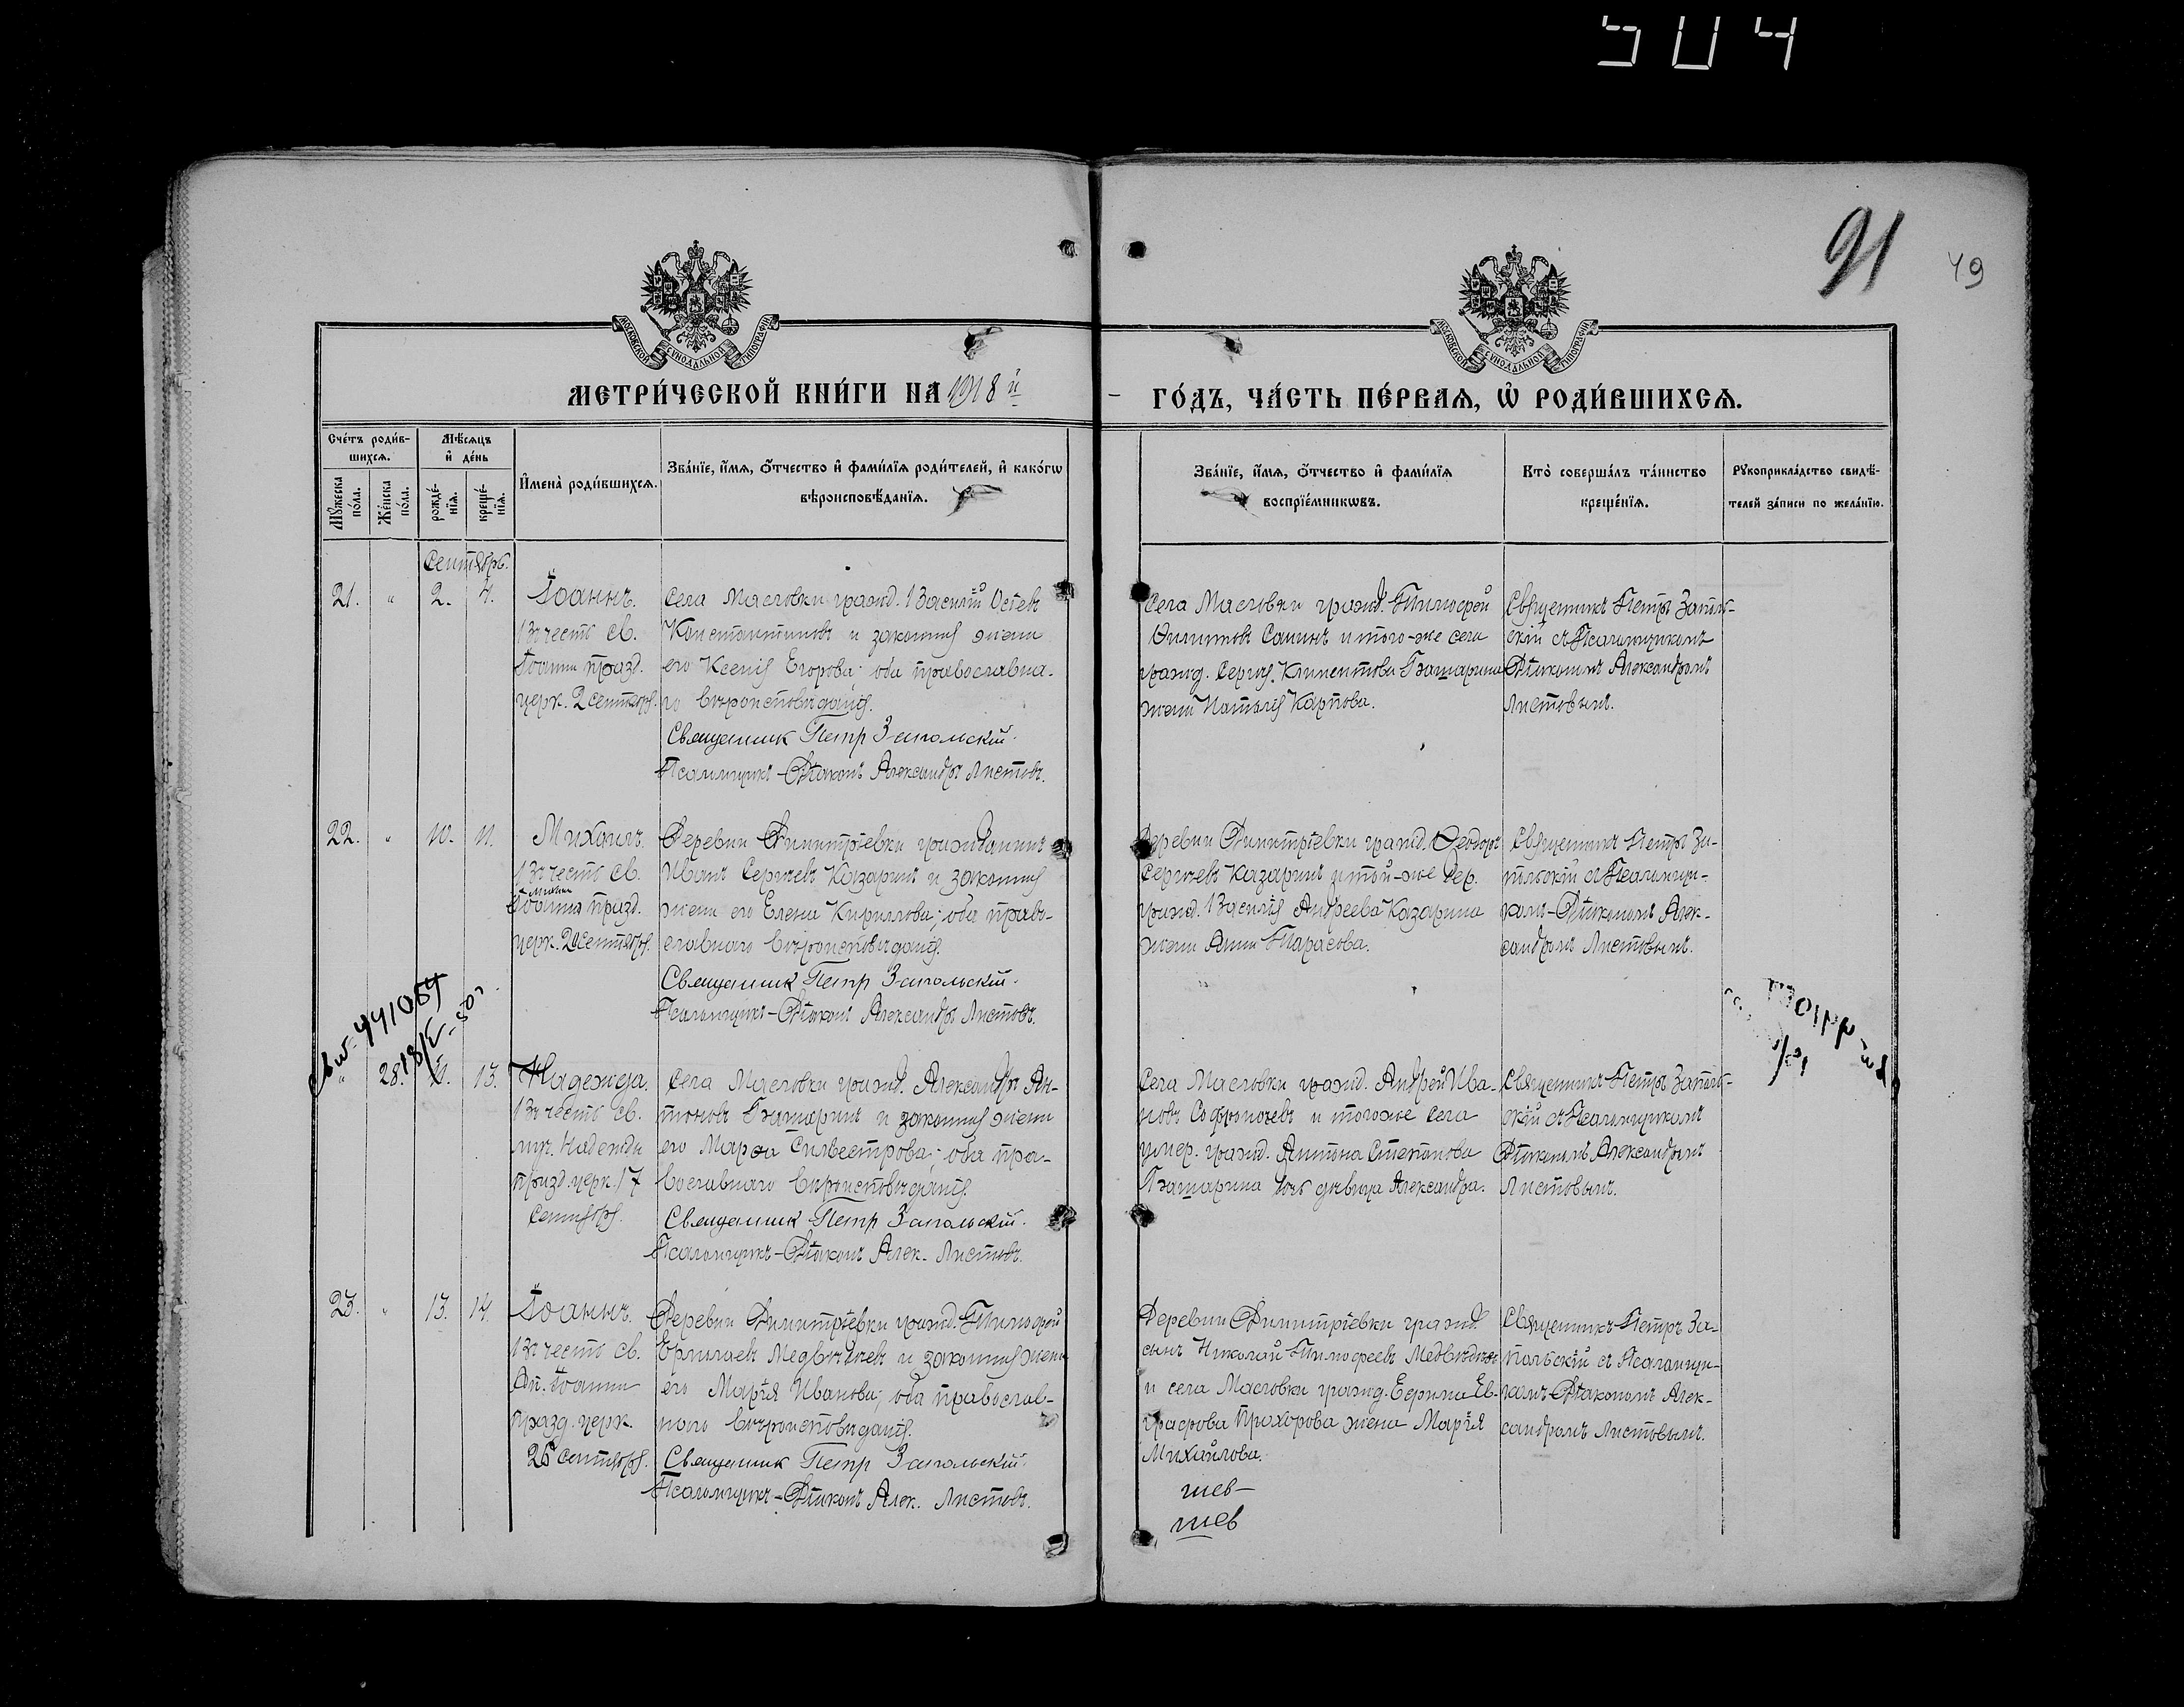 504
91
49
МОСКОВСКОЙ СѴНОДАЛЬНОЙ ТИПОГРАФІИ
МОСКОВСКОЙ СѴНОДАЛЬНОЙ ТИПОГРАФІИ
МЕТРИ́ЧЕСКОЙ КНИ́ГИ НА 1918й
ГО́ДЪ, ЧА́СТЬ ПЕ́РВАѦ, Ѡ҆ РОДИ́ВШИХСѦ.
Сче́тъ роди́в-
шихсѧ.
Мѣ́сѧцъ
и҆ де́нь
Мꙋ́жеска по́ла.
Же́нска по́ла.
рожде́-
нїѧ.
креще́-
нїѧ.
И҆мена̀ роди́вшихсѧ.
Зва́нїе, и҆́мѧ, ѻ҆́тчество и҆ фами́лїѧ роди́телей, и҆ како́гѡ
вѣроисповѣ́данїѧ.
Зва́нїе, и҆́мѧ, ѻ҆́тчество и҆ фами́лїѧ
воспрїе́мникѡвъ.
Кто̀ соверша́лъ та́инство
креще́нїѧ.
Рꙋкоприкла́дство свидѣ́-
телей за́писи по жела́нїю.
Сентябрь.
21. " 2. 4. Іоаннъ.
Въ честь св.
Іоанна празд.
церк. 2 сентября.
Села Масловки гражд. Василій
Константиновъ и законная жена
его Ксенія Егорова; оба православна-
го вѣроисповѣданія.
Священник Петр Запольскій.
Псаломщикъ-Діаконъ Александръ Листовъ.
Села Масловки гражд. Тимофей
Филиповъ Санинъ и того-же села
гражд. Сергія Климентова Гвашарина
жена Наталія Карпова.
Священникъ Петръ Заполь-
скій съ Псаломщикомъ
Діакономъ Александромъ
Листовымъ.
22. " 10. 11. Михаилъ.
Въ честь св.
празд.
церк. сентября.
Деревни Димитріевки гражданинъ
Иванъ Сергѣевъ Казаринъ и законная
жена его Елена Кириллова; оба право-
славнаго вѣроисповѣданія.
Священник Петр Запольскій.
Псаломщикъ-Діаконъ Александръ Листовъ.
Деревни Димитріевки гражд. Феодоръ
Сергѣевъ Казаринъ и той-же дер.
гражд. Василія Андреева Казарина
жена Анна Тарасова.
Священникъ Петръ За-
польскій съ Псаломщи-
комъ-Діакономъ Алек-
сандромъ Листовымъ.
" 28. 11. 13. Надежда.
Въ честь св.
муч. Надежды
празд. церк. 17
сентября.
Села Масловки гражд. Александръ Ан-
тоновъ Гвашаринъ и законная жена
его Марфа Сильвестрова; оба пра-
вославнаго вѣроисповѣданія.
Священник Петр Запольскій.
Псаломщикъ-Діаконъ Алек. Листовъ.
Села Масловки гражд. Андрей Ива-
новъ Софронычевъ и тогоже села
умер. гражд. Антона Степанова
Гвашарина дочь дѣвица Александра.
Священникъ Петръ Заполь-
скій съ Псаломщикомъ
Діакономъ Александромъ
Листовымъ.
23. " 13. 14. Іоаннъ.
Въ честь св.
Ап. Іоанна
празд. церк.
26 сентября.
Деревни Димитріевки гражд. Тимофей
Ермилаевъ Медвѣдевъ и законная жена
его Марія Иванова; оба православ-
наго вѣроисповѣданія.
Священник Петр Запольскій.
Псаломщикъ-Діаконъ Алек. Листовъ.
Деревни Димитріевки гражд.
сынъ Николай Тимофеевъ Медвѣдевъ
и села Масловки гражд. Ефрема Ев-
графова Прохорова жена Марія
Михайлова.
Священникъ Петръ За-
польскій съ Псаломщи-
комъ-Діакономъ Алек-
сандромъ Листовымъ.